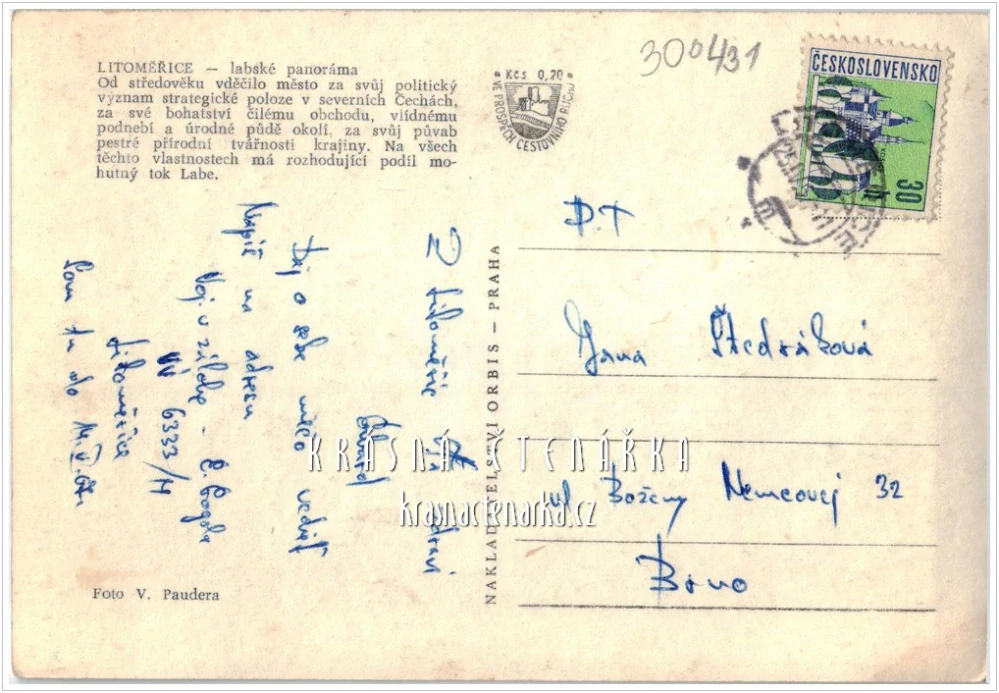 LITOMĚŘICE — labské panoráma
Od středověku vděčilo město za svůj politický
význam strategické poloze v severních Čechách,
za své bohatství čilému obchodu, vlídnému
podnebí a úrodné půdě okolí, za svůj půvab
pestré přírodní tvářnosti krajiny. Na všech
těchto vlastnostech má rozhodující podíl mo-
hutný tok Labe.
Kčs 0,20
VE PROSPĚCH CESTOVNÍHO RUCHU
300431
ČESKOSLOVENSKO
30 h
Z Litoměřic
zdraví
Daj o sebe niečo vedieť
Napíš na adresu
Voj. v zálohe - E. Gogola
VÚ 6333/H
Litoměřice
Som tu do 14.
NAKLADATELSTVÍ ORBIS — PRAHA
P.T
Jana Štedráková
ul Boženy Nemcovej 32
Brno
KRÁSNÁ ČTENÁŘKA
krasnactenarka.cz
Foto V. Paudera